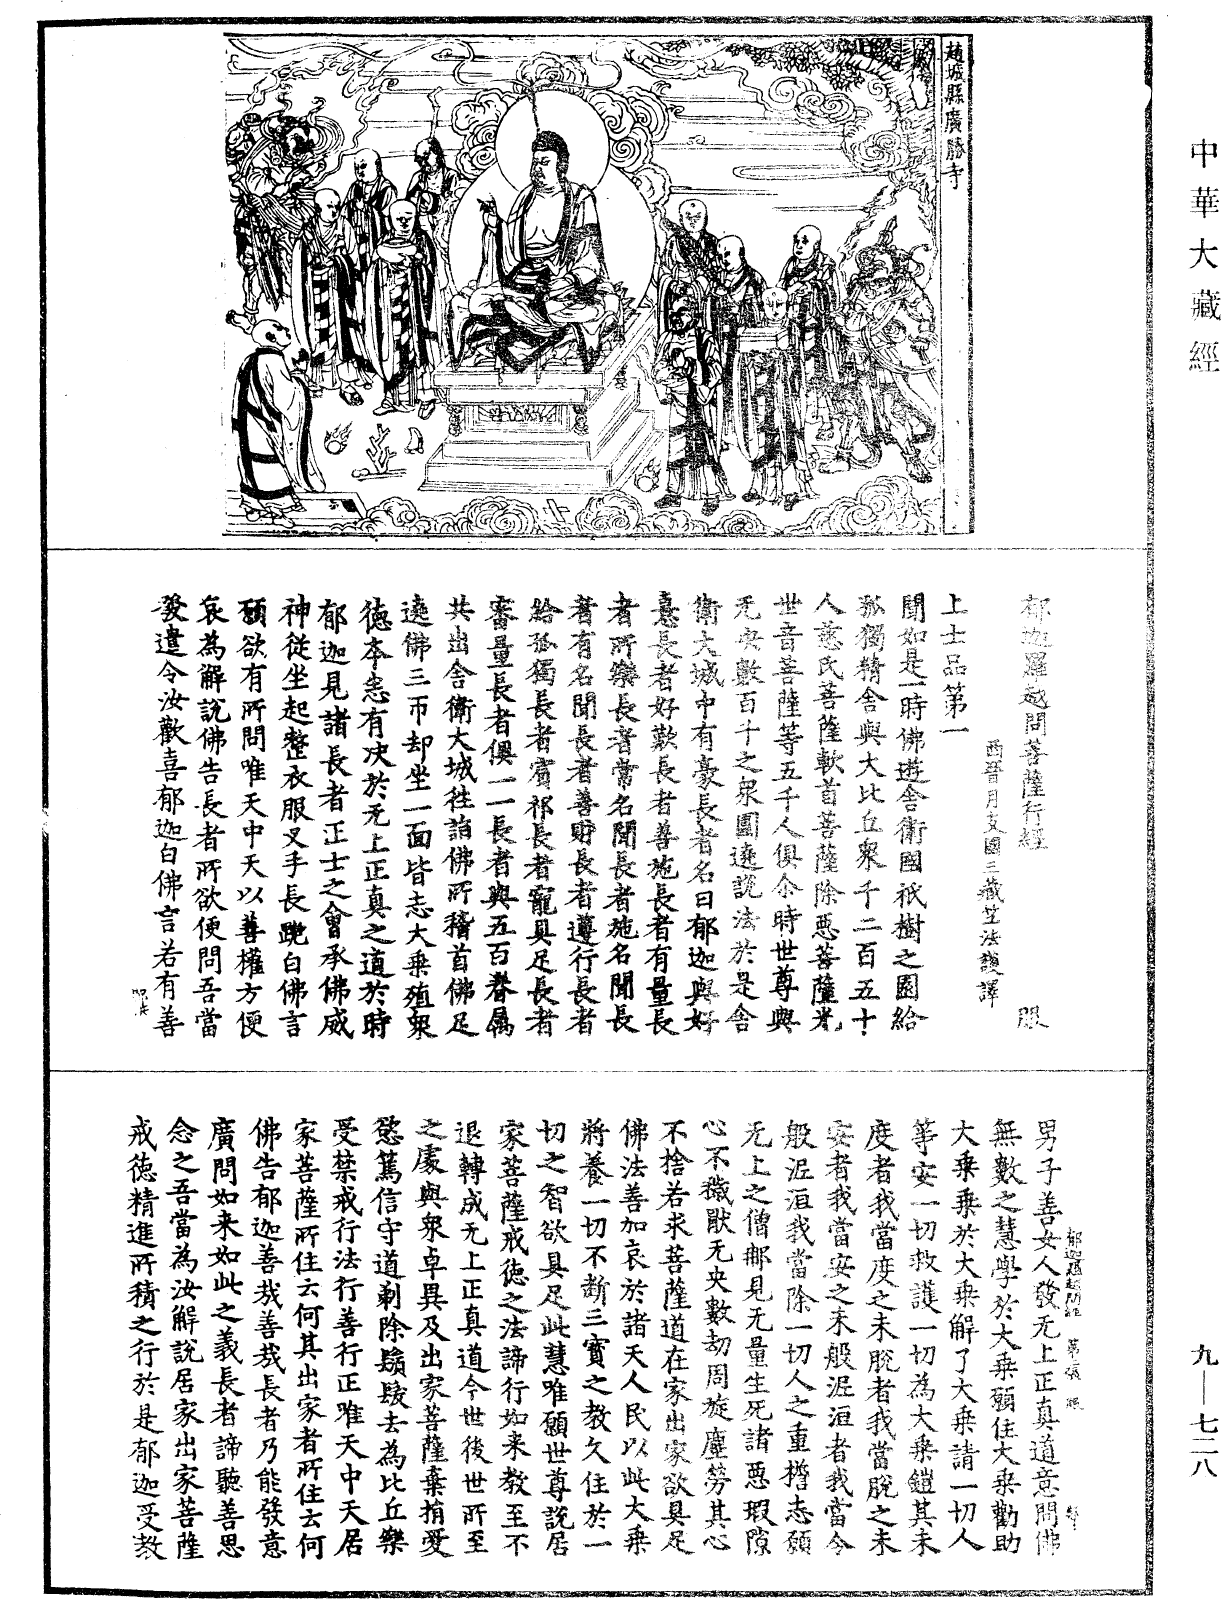 中華大藏經
趙城縣廣勝寺
郁迦羅越問菩薩行經 服
西晉月支國三藏竺法護譯
上士品第一
聞如是一時佛遊舍衛國祇樹之園給
孤獨精舍與大比丘衆千二百五十
人慈氏菩薩軟首菩薩除惡菩薩光
世音菩薩等五千人俱尒時世尊與
无央數百千之衆圍遶說法於是舍
衛大城中有豪長者名曰郁迦與好
意長者好歎長者善施長者有量長
者所樂長者常名聞長者施名聞長
者有名聞長者善財長者遵行長者
給孤獨長者賓祁長者寵具足長者
審量長者俱一一長者與五百眷屬
共出舍衛大城往詣佛所稽首佛足
遶佛三帀却坐一面皆志大乗殖衆
德本悉有決於无上正真之道於時
郁迦見諸長者正士之會承佛威
神從坐起整衣服叉手長跪白佛言
願欲有所問唯天中天以善權方便
哀為解說佛告長者所欲便問吾當
發遣令汝歡喜郁迦白佛言若有善
郁迦羅越問經 第二張 服
男子善女人發无上正真道意問佛
無數之慧學於大乗願住大乗勸助
大乗乗於大乗解了大乗請一切人
等安一切救護一切為大乗鎧其未
度者我當度之未脫者我當脫之未
安者我當安之未般泥洹者我當令
般泥洹我當除一切人之重擔志願
无上之僧那見无量生死諸惡瑕隙
心不穢厭无央數劫周旋塵勞其心
不捨若求菩薩道在家出家欲具足
佛法善加哀於諸天人民以此大乗
將養一切不斷三寶之教久住於一
切之智欲具足此慧唯願世尊說居
家菩薩戒德之法諦行如来教至不
退轉成无上正真道今世後世所至
之處與衆卓異及出家菩薩棄捐愛
慾篤信守道剃除鬚髮去為比丘樂
受禁戒行法行善行正唯天中天居
家菩薩所住云何其出家者所住云何
佛告郁迦善哉善哉長者乃能發意
廣問如来如此之義長者諦聽善思
念之吾當為汝解說居家出家菩薩
戒德精進所積之行於是郁迦受教
九—七二八